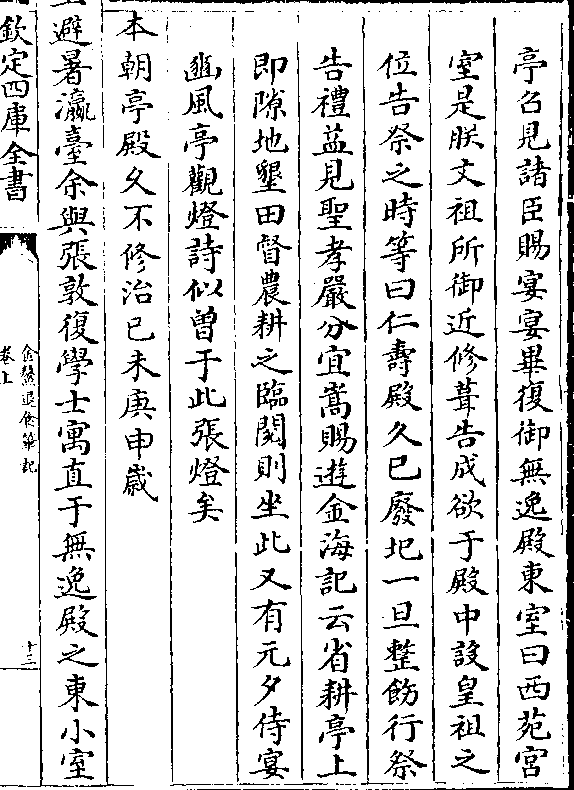 亭召見諸臣賜宴宴畢復御無逸殿東室曰西苑宮
室是朕文祖所御近修葺告成欲于殿中設皇祖之
位告祭之時等曰仁壽殿久已廢圯一旦整飭行祭
告禮益見聖孝嚴分宜嵩賜遊金海記云省耕亭上
即隙地墾田督農耕之臨閱則坐此又有元夕侍宴
豳風亭觀燈詩似曾于此張燈矣
本朝亭殿久不修治已未庚申嵗
上避暑瀛臺余與張敦復學士寓直于無逸殿之東小室
欽定四庫全書
金鰲退食筆記
卷上
十三